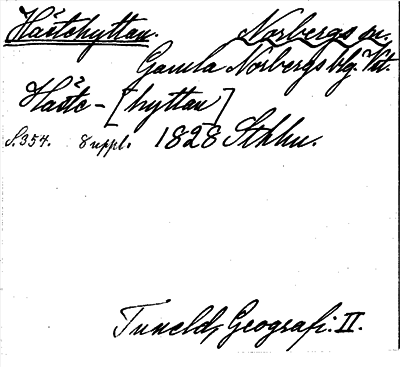 Håstehyttan. Norbergs sn.
Gamla Norbergs blg. Vstm.
Håste-[hyttan]
S. 354. 8 uppl. 1828 Sthlm.
Tunelds Geografi. II.